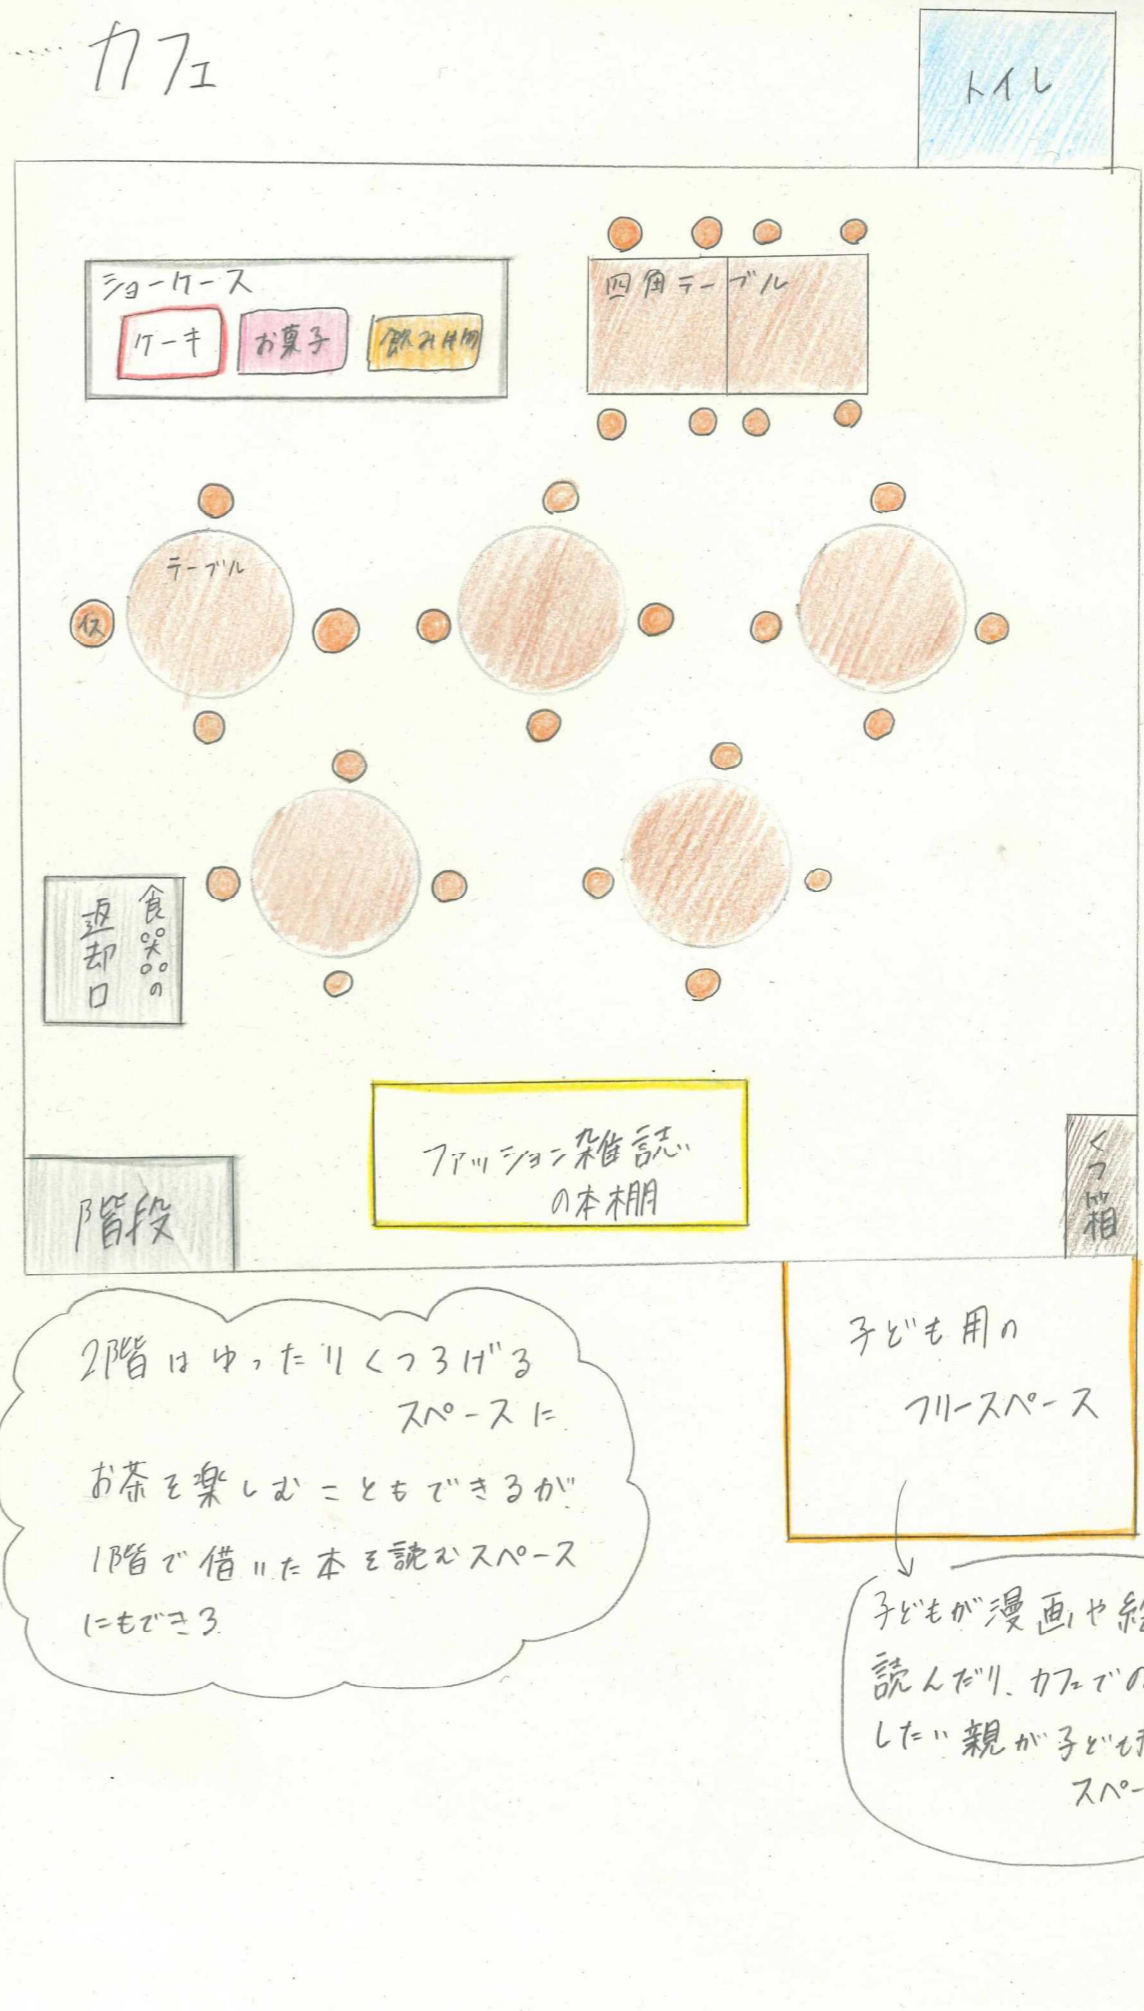 カフェ
トイレ
ショーケース
ケーキ
お菓子
飲み物
四角テーブル
テーブル
イス
食器の
返却口
ファッション雑誌
の本棚
階段
くつ箱
2階はゆったりくつろげる
スペースに
お茶を楽しむこともできるが
1階で借いた本を読むスペース
にもできる
子ども用の
フリースペース
子どもが漫画や絵
読んだり、カフェでの
したい親が子ども
スペー